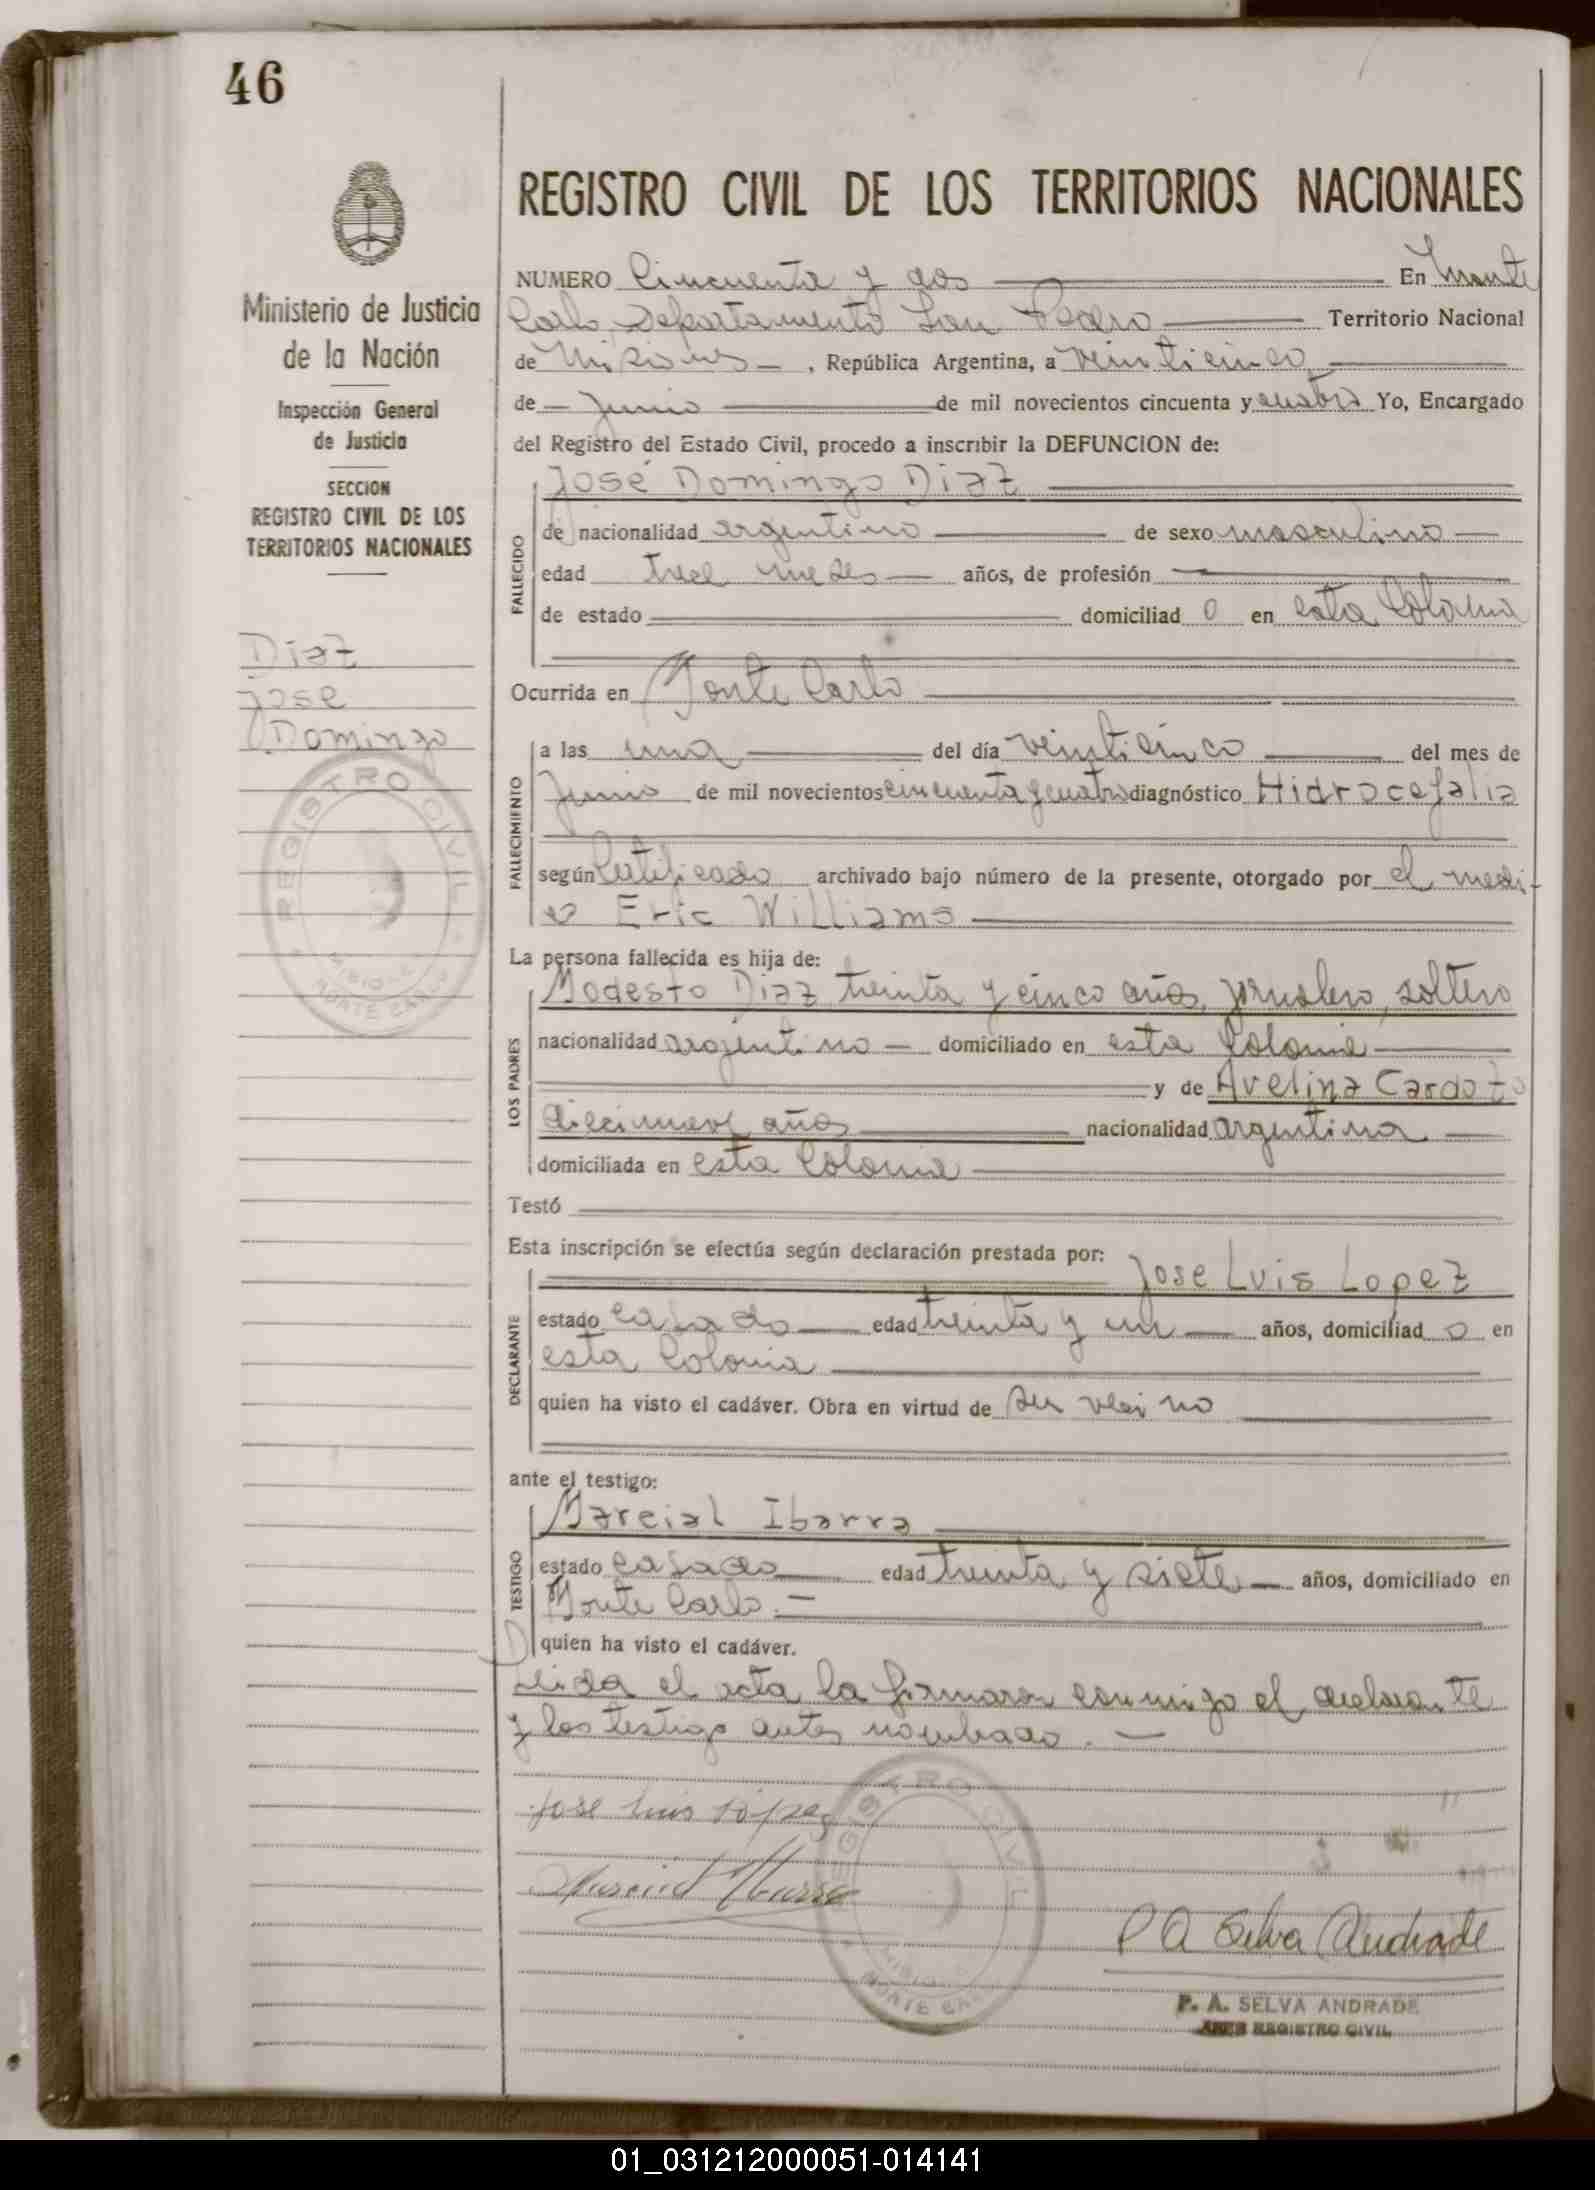 46
REGISTRO CIVIL DE LOS TERRITORIOS NACIONALES
Ministerio de Justicia
de la Nación
Inspección General
de Justicia
SECCION
REGISTRO CIVIL DE LOS
TERRITORIOS NACIONALES
Diaz
Jose
Domingo
REGISTRO CIVIL
MISIONES
MONTE CARLO
NUMERO Cincuenta y dos En Monte
Carlo, Departamento San Pedro Territorio Nacional
de Misiones , República Argentina, a veinticinco
de Junio de mil novecientos cincuenta y cuatro Yo, Encargado
del Registro del Estado Civil, procedo a inscribir la DEFUNCION de:
FALLECIDO
José Domingo Diaz
de nacionalidad argentino de sexo masculino
edad trece meses años, de profesión
de estado domiciliad o en esta Colonia
Ocurrida en Monte Carlo
FALLECIMIENTO
a las una del día veinticinco del mes de
Junio de mil novecientos cincuenta y cuatro diagnóstico Hidrocefalia
según Certificado archivado bajo número de la presente, otorgado por el medi-
co Eric Williams
La persona fallecida es hija de:
LOS PADRES
Modesto Diaz treinta y cinco años, jornalero, soltero
nacionalidad argentino domiciliado en esta Colonia
y de Avelina Cardozo
diecinueve años nacionalidad argentina
domiciliada en esta Colonia
Testó
Esta inscripción se efectúa según declaración prestada por:
DECLARANTE
Jose Luis Lopez
estado casado edad treinta y un años, domiciliad o en
esta Colonia
quien ha visto el cadáver. Obra en virtud de ser vecino
ante el testigo:
TESTIGO
Marcial Ibarra
estado casado edad treinta y siete años, domiciliado en
Monte Carlo.
quien ha visto el cadáver.
Leida el acta la firmaron conmigo el declarante
y los testigo antes nombrado.
Jose Luis López
Marcial Ibarra
REGISTRO CIVIL
MISIONES
MONTE CARLO
P A Selva Andrade
P. A. SELVA ANDRADE
JEFE REGISTRO CIVIL
01_031212000051-014141